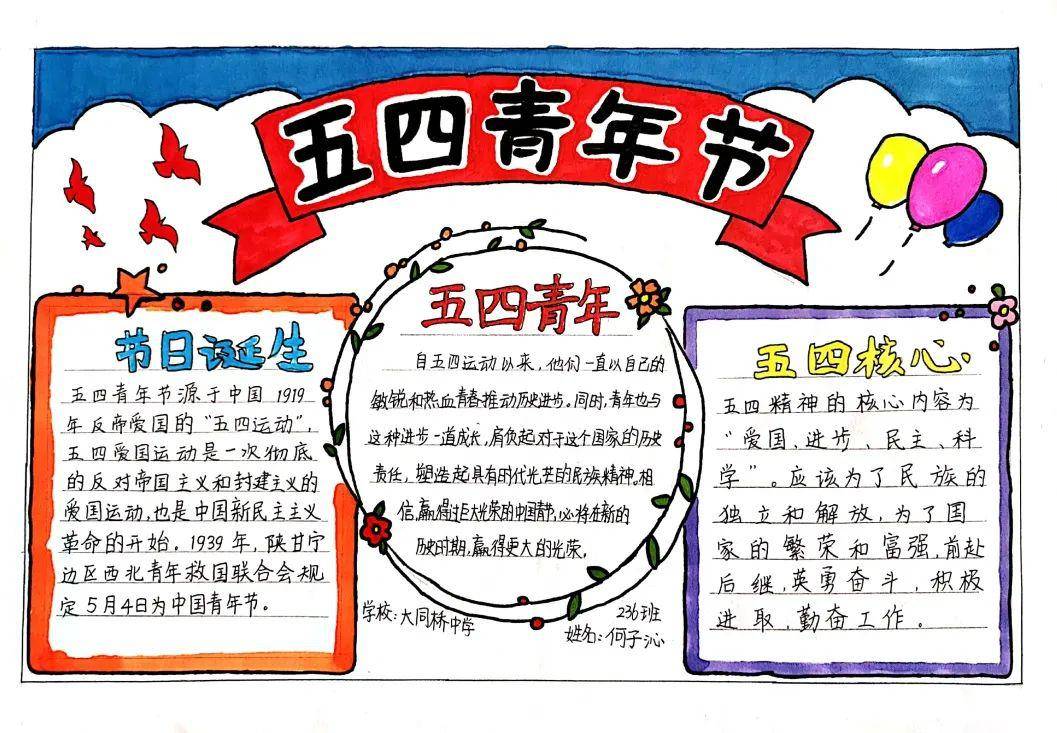 五四青年节
节日诞生
五四青年节源于中国1919
年反帝爱国的“五四运动”,
五四爱国运动是一次彻底
的反对帝国主义和封建主义的
爱国运动,也是中国新民主主义
革命的开始。1939年,陕甘宁
边区西北青年救国联合会规
定5月4日为中国青年节。
五四青年
自五四运动以来,他们一直以自己的
敏锐和热血青春推动历史进步。同时,青年也与
这种进步一道成长,肩负起对于这个国家的历史
责任,塑造起具有时代光芒的民族精神。相
信,赢得过巨大光荣的中国青年,必将在新的
历史时期,赢得更大的光荣。
学校:大同桥中学
236班
姓名:何子沁
五四核心
五四精神的核心内容为
“爱国、进步、民主、科
学”。应该为了民族的
独立和解放,为了国
家的繁荣和富强,前赴
后继,英勇奋斗,积极
进取,勤奋工作。